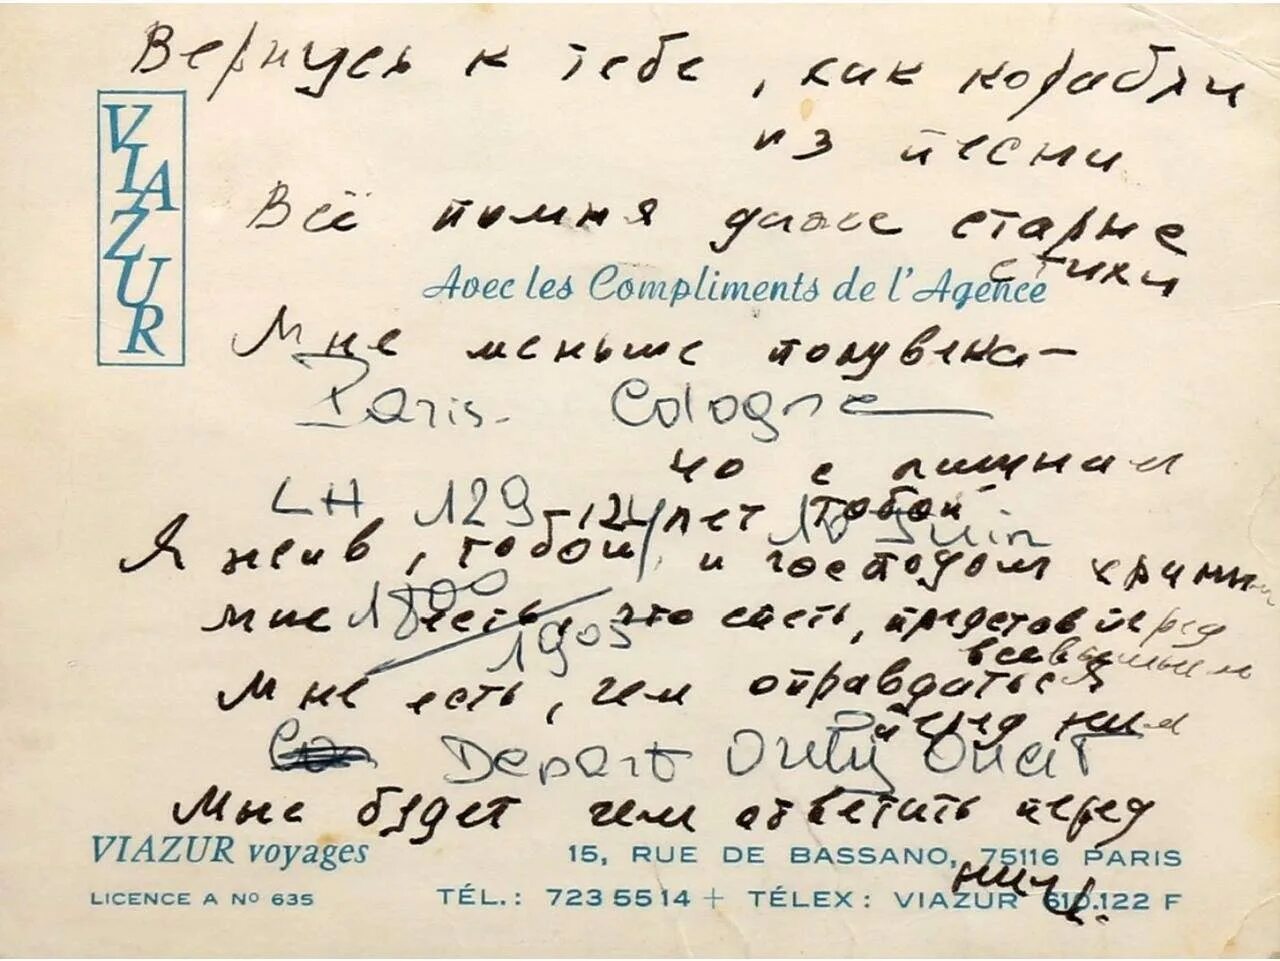 Вернусь к тебе, как корабли
из песни
VIAZUR
Всё помня даже старые
стихи
Avec les Compliments de l'Agence
Мне меньше полувека—
Paris. Cologne
но с лишним
LH 129 лет тобой
10 Juin
Я жив, тобой и господом храним
1800
мне есть, что спеть, представ перед
всевышним
1905
Мне есть, чем оправдаться
перед ним
Depart Orly Ouest
Мне будет чем ответить перед
ним.
VIAZUR voyages
15, RUE DE BASSANO, 75116 PARIS
LICENCE A Nº 635
TÉL.: 723 55 14 + TÉLEX: VIAZUR 610.122 F